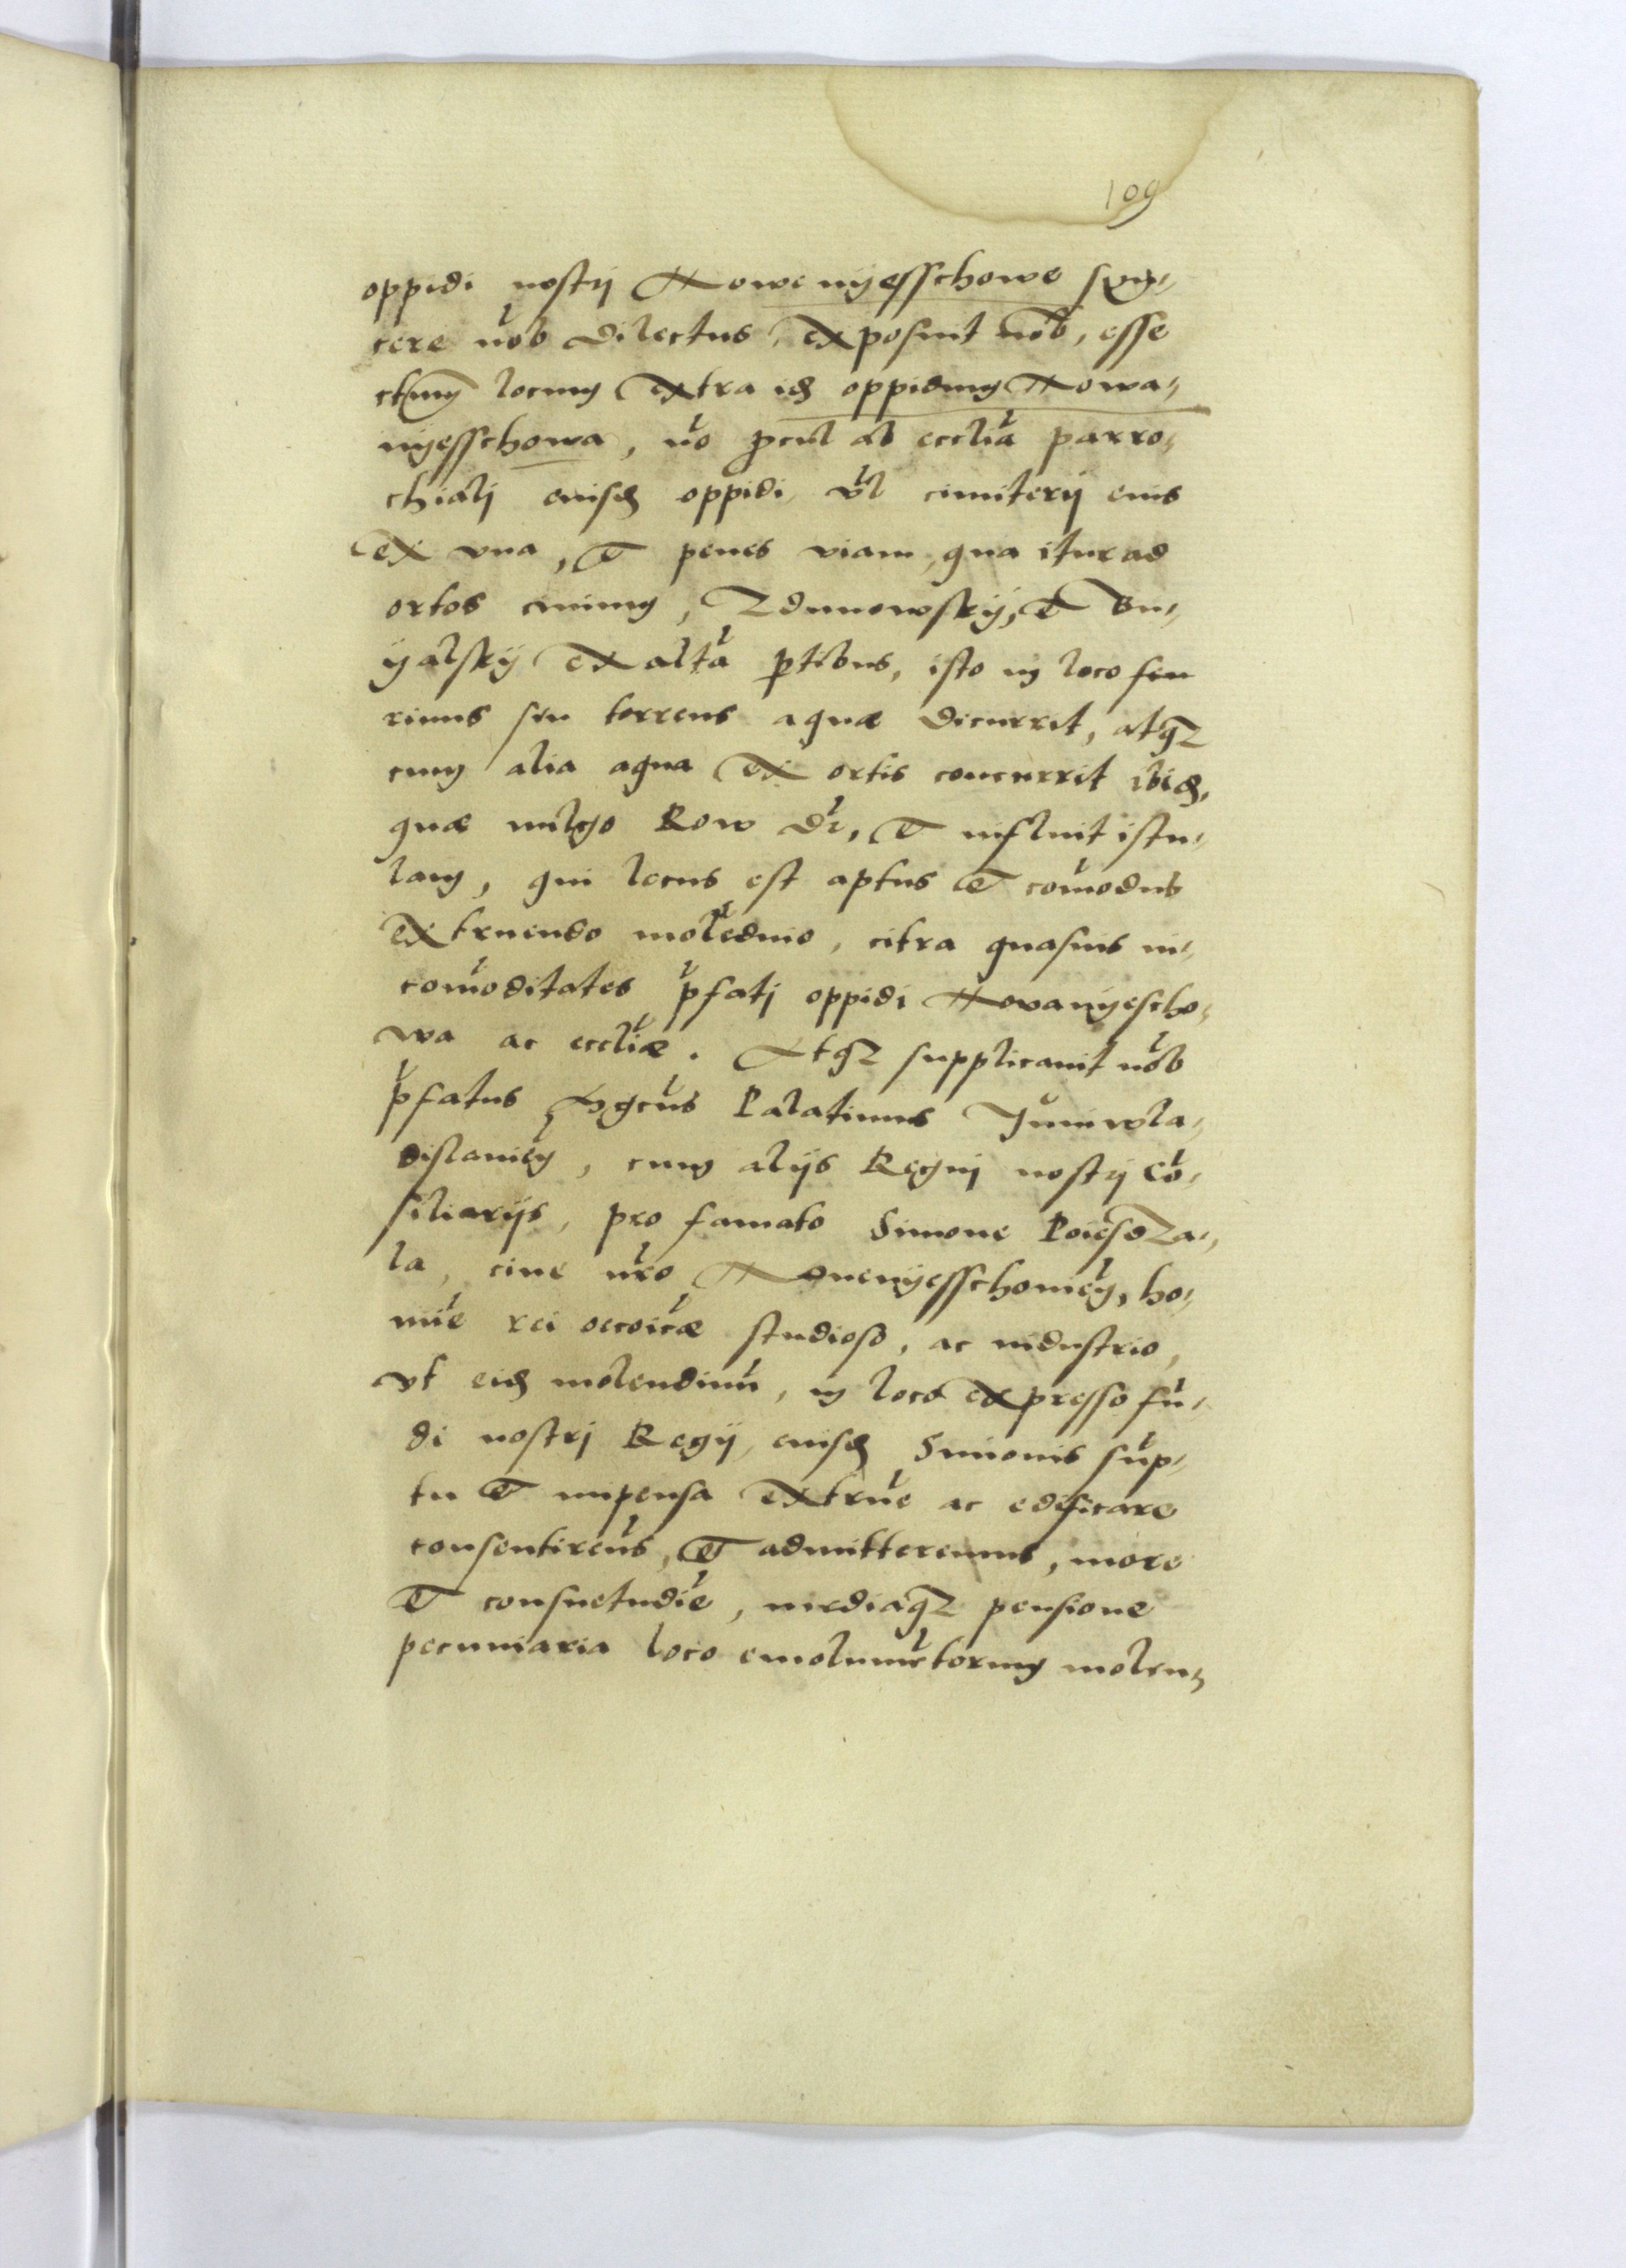 109
oppidi nostrj Nowenyesschowe syn,,
cere nob dilectus, exposuit nob, esse
ctum locum extra id oppidum Nowa,,
nyesschowa, no pcul ab ecclia parro,,
chialj eiusd oppidi vl cimiterij eius
ex vna, et penes viam, qua itur ad
ortos ciuium, Zdunowskij, et Bu,,
yalskij ex alta ptibus, isto in loco seu
riuus seu torrens aquæ dicurrit, atqz
cum alia aqua ex ortis concurrit ibid,
quæ vulgo Row dr, et influit istu,,
lam, qui locus est aptus et comodus
extruendo molednio, citra quasuis in,,
comoditates pfatj oppidi Novanyescho,,
wa ac eccliæ. Atqz supplicauit nob
pfatus Mgcus Palatinus Juniwla,,
dislauien, cum alijs Regnj nostrj Co,,
siliarijs, pro famato Simone Poiesdza,,
la, ciue nro Nouenyesschouien, ho,,
mie rei oecoicæ studioso, ac industrio,
vt eid molendinu, in loco expresso fu,,
di nostrj Regij, eiusd Simonis sup,,
tu et impensa extrue ac edificare
consentirems, et admitteremus, more
et consuetudie, mediaqz pensione
pecuniaria loco emolumetorum molen,,